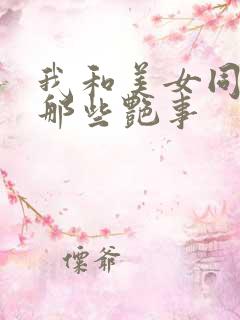 我和美女同
那些艷事
懷爺